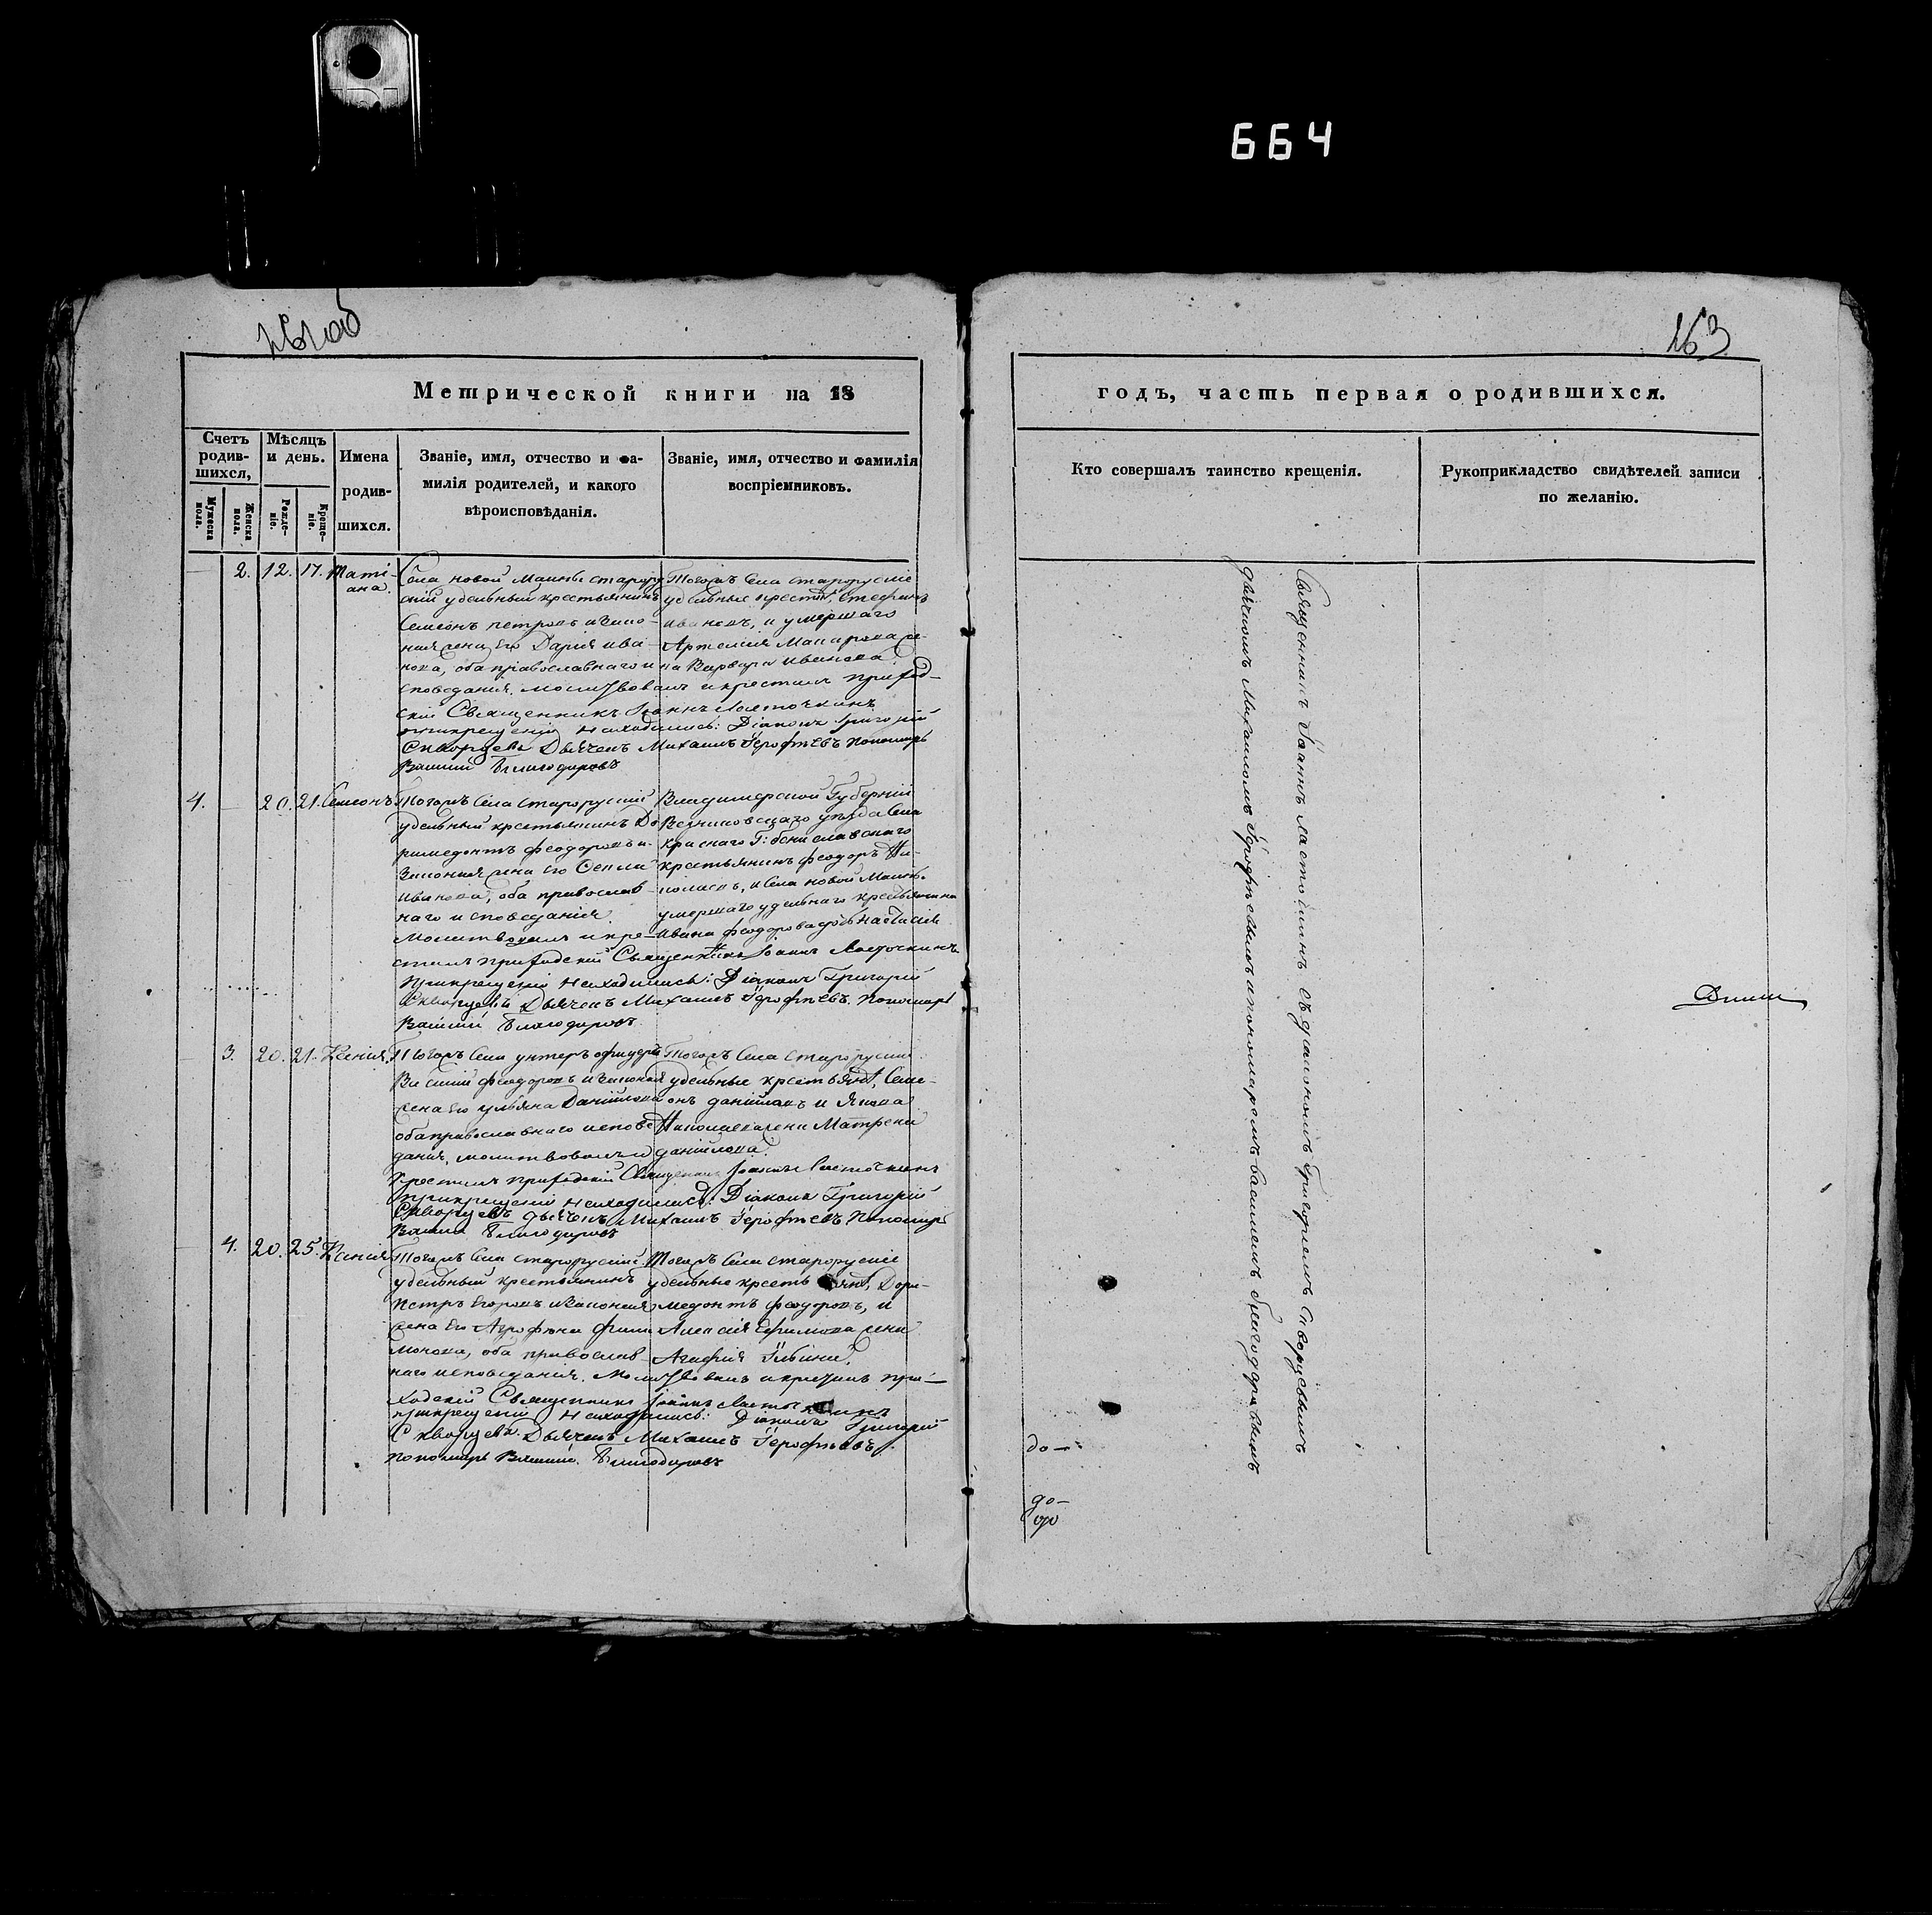 664
163
Метрической книги на 18
годъ, часть первая о родившихся.
Счетъ родившихся,
Мужеска пола.
Женска пола.
Мѣсяцъ и день.
Рожденіе.
Крещеніе.
Имена родившихся.
Званіе, имя, отчество и фамилія родителей, и какого вѣроисповѣданія.
Званіе, имя, отчество и фамилія воспріемниковъ.
Кто совершалъ таинство крещенія.
Рукоприкладство свидѣтелей записи по желанію.
2. 12. 17. Татіана.
Села новой Маины старорускій удельный крестьянинъ
Семеонъ петровъ и законная жена его Дарія иванова, оба православнаго исповеданія.
молитвовалъ и крестилъ приходскій Священникъ Іоаннъ Ласточкинъ
прикрещеніи находились: Діаконъ Григорій
Скворцевъ Дьячекъ Михаилъ Іерофѣевъ Пономарь
Василій Благодаровъ
Тогожъ Села старорускіе
удельные крестьяне, Стефанъ
ивановъ, и умершаго
Артемія Макарова жена Варвара иванова.
4. 20. 21. Семеонъ
Тогожъ Села старорускій
удельный крестьянинъ Доримедонтъ феодоровъ и законная жена его
иванова, оба православнаго исповеданія.
Молитвовалъ и крестилъ приходскій Священникъ Іоаннъ Ласточкинъ
Прикрещеніи находились: Діаконъ Григорій
Скворцевъ Дьячекъ Михаилъ Іерофѣевъ Пономарь
Василій Благодаровъ
Владимерской Губерніи
уѣзда Села
краснаго
крестьянинъ феодоръ
и Села новой Маины
умершаго удельнаго крестьянина
Ивана феодорова дочь
3. 20. 21. Ксенія.
Тогожъ Села унтеръ офицеръ
Василій феодоровъ и законная
жена его ульяна Данійлова
оба православнаго исповеданія, молитвовалъ и
Крестилъ приходскій Священникъ Іоаннъ Ласточкинъ
Прикрещеніи находились: Діаконъ Григорій
Скворцевъ дьячекъ Михаилъ Іерофѣевъ Пономарь
Василій Благодаровъ
Тогожъ Села старорускіе
удельные крестьяне, Семеонъ данійловъ и Якова
Николаева жена Матрена
данійлова.
4. 20. 25. Ксенія
Тогожъ Села старорускій
удельный крестьянинъ
Петръ Егоровъ и законная
жена его Агрофена филимонова, оба православнаго исповеданія. Молитвовалъ и крестилъ приходскій Священникъ Іоаннъ Ласточкинъ
прикрещеніи находились: Діаконъ Григорій
Скворцевъ. Дьячекъ Михаилъ Іерофѣевъ.
пономарь Василій Благодаровъ
Тогожъ Села старорускіе
удельные крестьяне, Доримедонтъ феодоровъ, и
Алексія Ефимова жена
Агафія Ильина.
Священникъ Іоаннъ Ласточкинъ съ діакономъ Григоріемъ Скворцевымъ
дьячкомъ Михаиломъ Іерофѣевымъ и пономаремъ Василіемъ Благодаровымъ
до-
до-